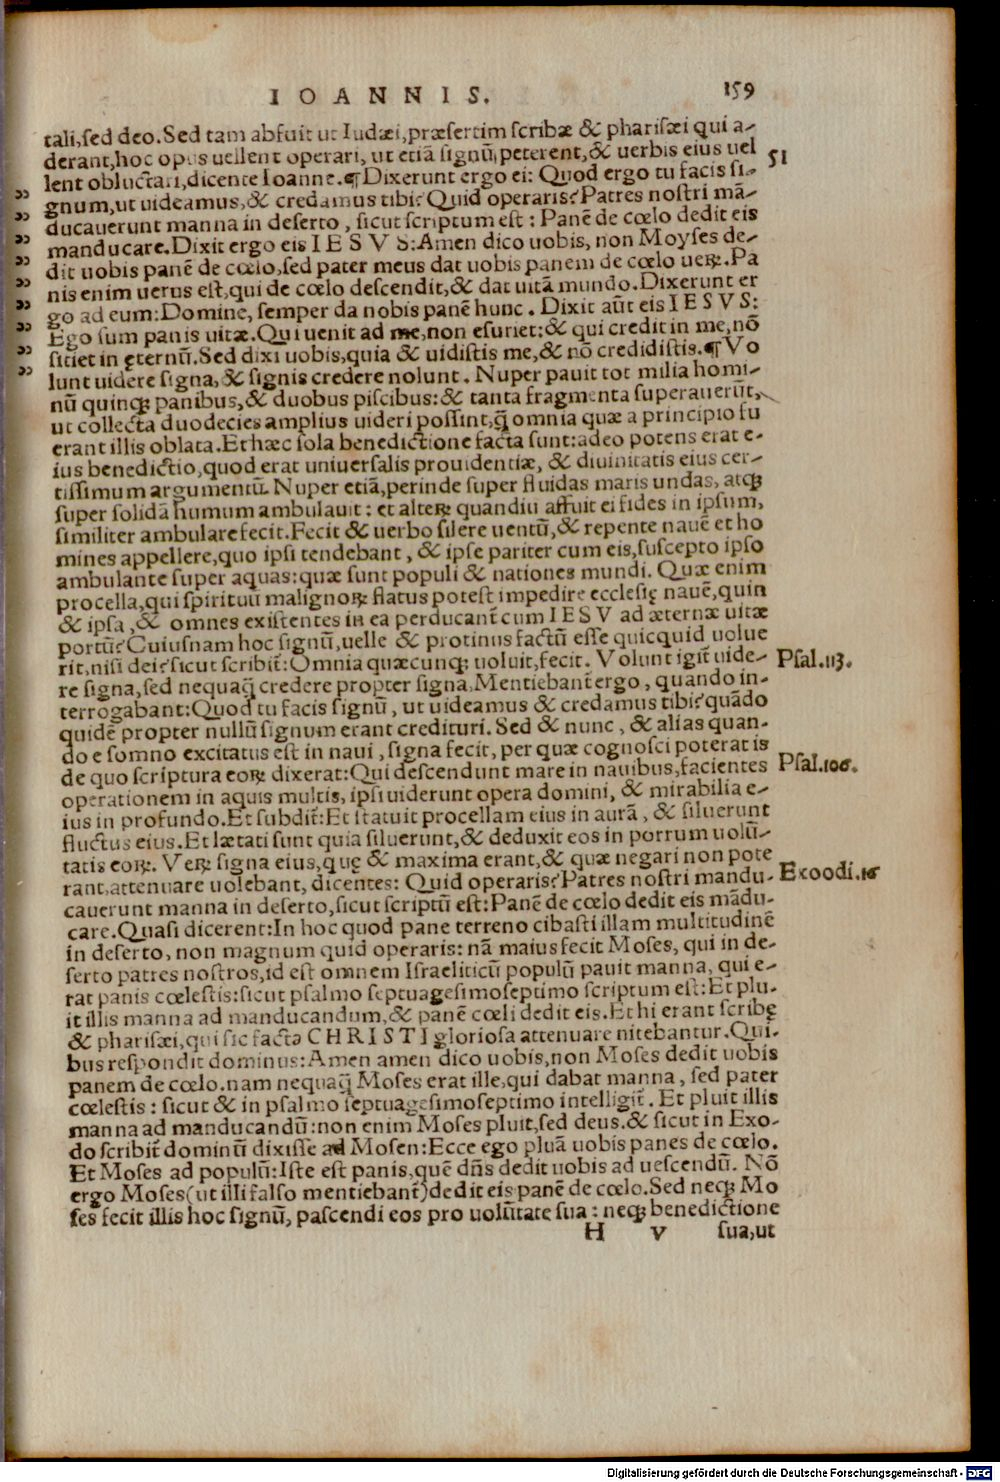 IOANNIS. 159
tali,sed deo.Sed tam abfuit ut Iudæi,præsertim scribæ & pharisæi qui a-
derant,hoc opus uellent operari, ut etiā signū peterent,& uerbis eius uel 51
lent obluctari,dicente Ioanne.¶Dixerunt ergo ei: Quod ergo tu facis si-
gnum,ut uideamus,& credamus tibi?Quid operaris?Patres nostri mā-
ducauerunt manna in deserto, sicut scriptum est: Panē de cœlo dedit eis
manducare.Dixit ergo eis IESVS:Amen dico uobis, non Moyses de-
dit uobis panē de cœlo,sed pater meus dat uobis panem de cœlo ueꝝ.Pa
nis enim uerus est,qui de cœlo descendit,& dat uitā mundo.Dixerunt er
go ad eum:Domine, semper da nobis panē hunc. Dixit aūt eis IESVS:
Ego sum panis uitæ.Qui uenit ad me,non esuriet:& qui credit in me,nō
sitiet in ęternū.Sed dixi uobis,quia & uidistis me,& nō credidistis.¶Vo
lunt uidere signa,& signis credere nolunt. Nuper pauit tot milia homi-
nū quinqꝫ panibus,& duobus piscibus:& tanta fragmenta superauerūt,
ut collecta duodecies amplius uideri possint,q̄ omnia quæ a principio fu
erant illis oblata.Et hæc sola benedictione facta sunt:adeo potens erat e-
ius benedictio,quod erat uniuersalis prouidentiæ, & diuinitatis eius cer-
tissimum argumentū. Nuper etiā,perinde super fluidas maris undas, atqꝫ
super solidā humum ambulauit: et alteꝝ quandiu affuit ei fides in ipsum,
similiter ambulare fecit.Fecit & uerbo silere uentū,& repente nauē et ho
mines appellere,quo ipsi tendebant, & ipse pariter cum eis,suscepto ipso
ambulante super aquas:quæ sunt populi & nationes mundi. Quæ enim
procella,qui spirituū malignoꝝ flatus potest impedire ecclesię nauē,quin
& ipsa,& omnes existentes in ea perducant̄ cum IESV ad æternæ uitæ
portū?Cuiusnam hoc signū,uelle & protinus factū esse quicquid uolue
rit,nisi dei?sicut scribit̄:Omnia quæcunqꝫ uoluit,fecit. Volunt igit̄ uide- Psal.113.
re signa,sed nequaq̄ credere propter signa.Mentiebant̄ ergo, quando in-
terrogabant:Quod tu facis signū, ut uideamus & credamus tibi?quādo
quidē propter nullū signum erant credituri. Sed & nunc, & alias quan-
do e somno excitatus est in naui, signa fecit, per quæ cognosci poterat is
de quo scriptura eoꝝ dixerat:Qui descendunt mare in nauibus,facientes Psal.106.
operationem in aquis multis, ipsi uiderunt opera domini, & mirabilia e-
ius in profundo.Et subdit̄:Et statuit procellam eius in aurā, & siluerunt
fluctus eius.Et lætati sunt quia siluerunt,& deduxit eos in portum uolū-
tatis eoꝝ. Veꝝ signa eius,quę & maxima erant,& quæ negari non pote
rant,attenuare uolebant, dicentes: Quid operaris?Patres nostri mandu- Exoodi.16
cauerunt manna in deserto,sicut scriptū est:Panē de cœlo dedit eis mādu-
care.Quasi dicerent:In hoc quod pane terreno cibasti illam multitudinē
in deserto, non magnum quid operaris: nā maius fecit Moses, qui in de-
serto patres nostros,id est omnem Israeliticū populū pauit manna, qui e-
rat panis cœlestis:sicut psalmo septuagesimoseptimo scriptum est:Et plu-
it illis manna ad manducandum,& panē cœli dedit eis.Et hi erant scribę
& pharisæi,qui sic facta CHRISTI gloriosa attenuare nitebantur.Qui-
bus respondit dominus:Amen amen dico uobis,non Moses dedit uobis
panem de cœlo.nam nequaq̄ Moses erat ille,qui dabat manna, sed pater
cœlestis: sicut & in psalmo septuagesimoseptimo intelligit̄. Et pluit illis
manna ad manducandū:non enim Moses pluit,sed deus.& sicut in Exo-
do scribit̄ dominū dixisse ad Mosen:Ecce ego pluā uobis panes de cœlo.
Et Moses ad populū:Iste est panis,quē dn̄s dedit uobis ad uescendū. Nō
ergo Moses(ut illi falso mentiebant̄)dedit eis panē de cœlo.Sed neqꝫ Mo
ses fecit illis hoc signū, pascendi eos pro uolūtate sua: neqꝫ benedictione
H v sua,ut
Digitalisierung gefördert durch die Deutsche Forschungsgemeinschaft - DFG